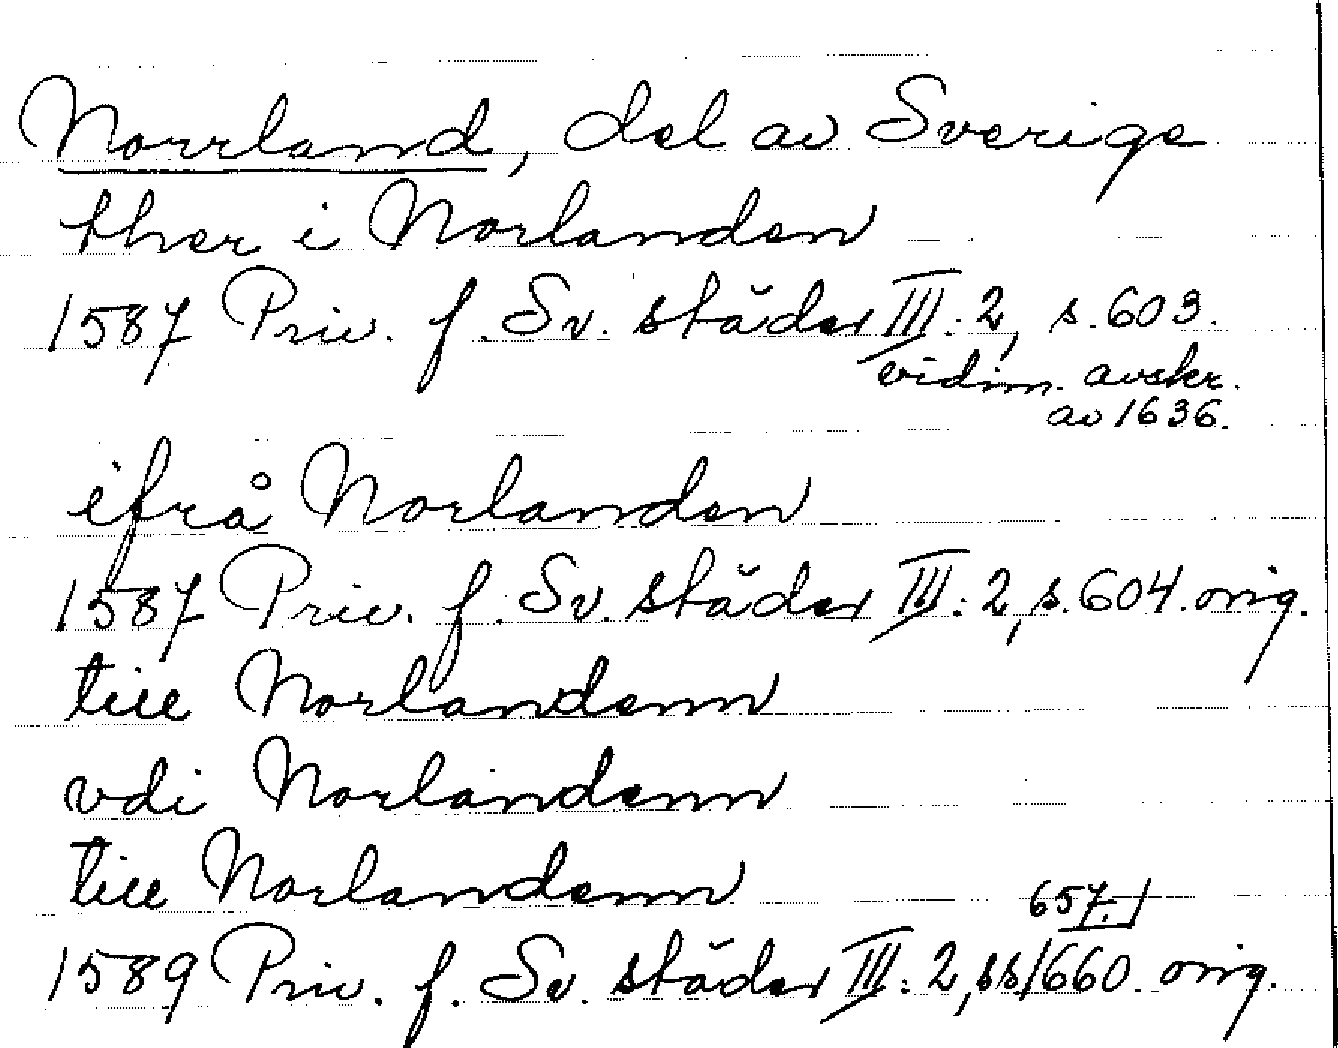 Norrland, del av Sverige
ther i Norlanden
1587 Priv. f. Sv. städer III:2, s.603.
vidim. avskr.
av 1636.
ifrå Norlanden
1587 Priv. f. Sv. städer III:2, s.604. orig.
till Norlandenn
vdi Norlandenn
till Norlandenn
657.
1589 Priv. f. Sv. städer III:2, ss/660. orig.